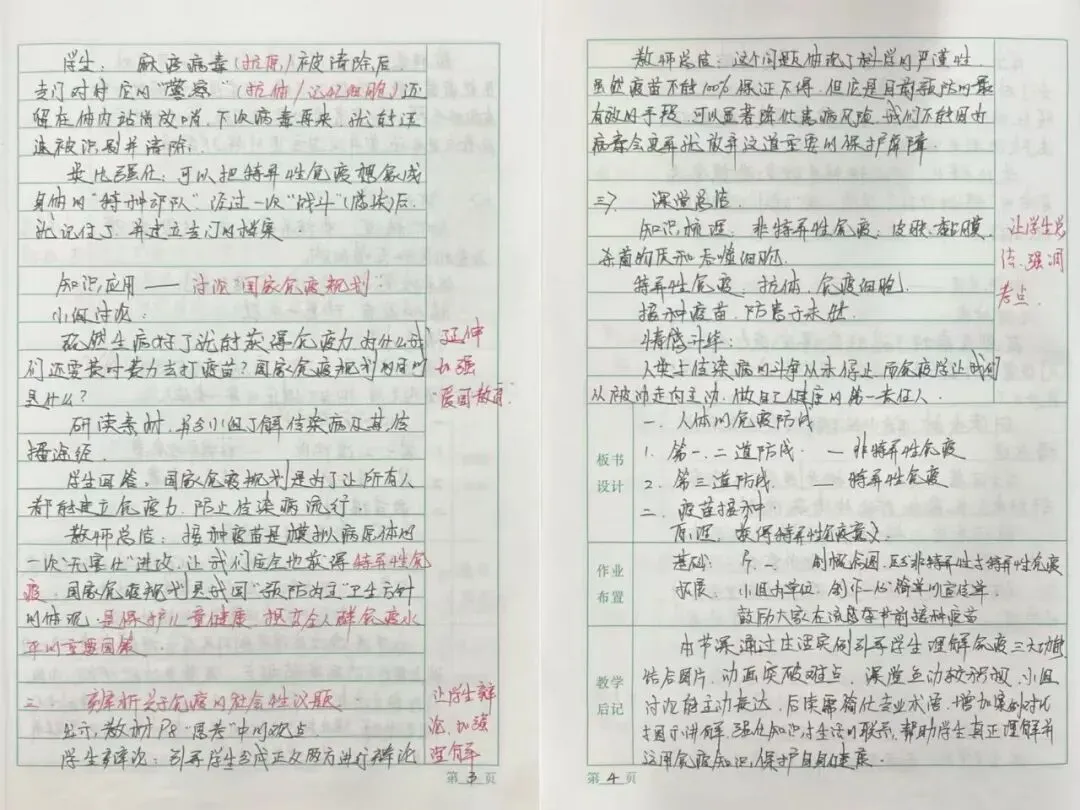 学生：麻疹病毒（抗原）被清除后
专门对付它的“警察”（抗体/记忆细胞）还
留在体内站岗放哨，下次病毒再来，就能迅
速被识别并清除。
类比强化：可以把特异性免疫想象成
身体的“特种部队”经过一次“战斗”（感染）后，
就记住了，并建立专门的档案
知识应用——讨论国家免疫规划：
小组讨论：
既然生病好了就能获得免疫力，为什么我
们还要费时费力去打疫苗？国家免疫规划的目的
是什么？
延伸
加强
“爱国教育”
研读素材， 小组了解传染病及其传
播途经。
学生回答，国家免疫规划是为了让所有人
都能建立免疫力，阻止传染病流行。
教师总结：接种疫苗是模拟病原体的
一次“无害化”进攻，让我们安全地获得特异性免
疫，国家免疫规划是我国“预防为主”卫生方针
的体现，是保护儿童健康，提高全人群免疫水
平的重要国策
二、 辨析关于免疫的社会性议题
出示，教材P8“思考”中的观点
学生辩论：引导学生分成正反两方进行辩论
让学生辩
论，加强
理解
第 3 页
教师总结：这个问题体现了科学的严谨性，
虽然疫苗不能100%保证不得，但它是目前预防的最
有效的手段，可以显著降低患病风险，我们不能因为
病毒会变异就放弃这道至关重要的保护屏障
三、 课堂总结
知识梳理：非特异性免疫：皮肤、黏膜、
杀菌物质和吞噬细胞
特异性免疫：抗体、免疫细胞
接种疫苗，防患于未然
情感升华：
人类与传染病的斗争从未停止，而免疫学让我们
从被动走向主动，做自己健康的第一责任人。
让学生总
结，强调
考点。
板书
设计
一、人体的免疫防线
1. 第一、二道防线 —— 非特异性免疫
2. 第三道防线 —— 特异性免疫
二、疫苗接种
原理：获得特异性免疫
作业
布置
基础： 制概念图，区分非特异性与特异性免疫
拓展：小组为单位，创作一份简单的宣传单
鼓励大家在流感季节前接种疫苗
教学
后记
本节课通过生活实例引导学生理解免疫三大功能
结合图片、动画突破难点，课堂互动较 ，小组
讨论能主动表达，后续需简化专业术语，增加案例对比
与图示讲解，强化知识与生活的联系，帮助学生真正理解并
运用免疫知识，保护自身健康。
第 4 页